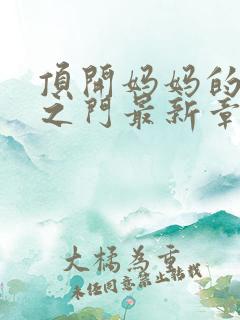 頂開妈妈的
之门最新章
大橘為重
未经同意禁止转载